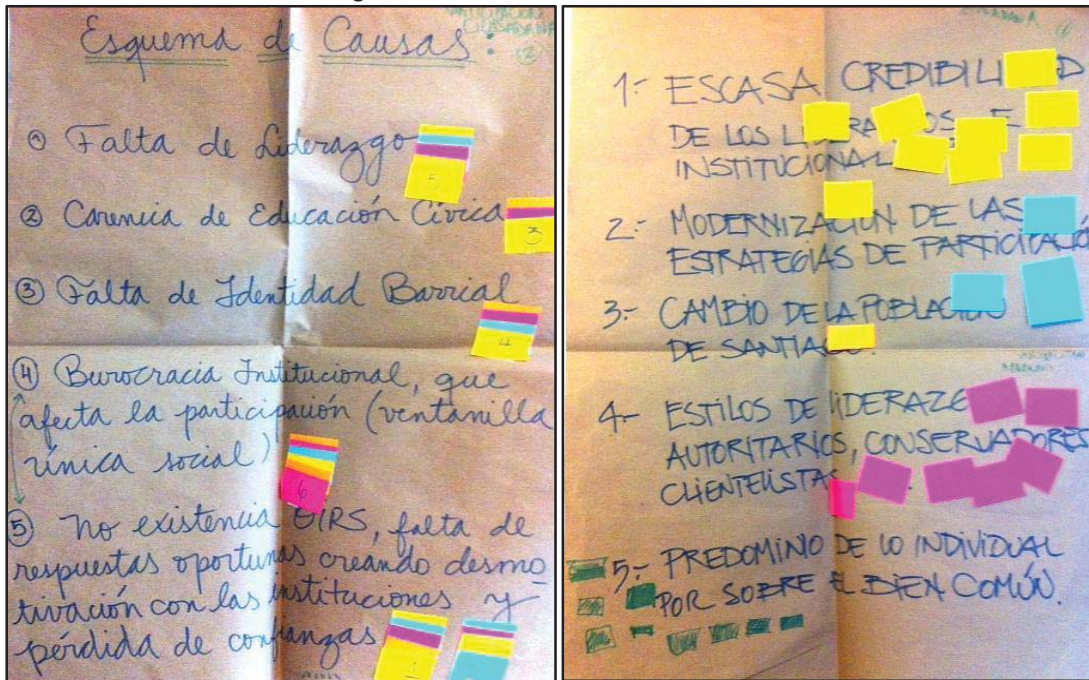 PARTICIPACIÓN
CIUDADANA
(2)
Esquema de Causas:
① Falta de Liderazgo
5
② Carencia de Educación Cívica
3
③ Falta de Identidad Barrial
4
④ Burocracia Institucional, que
afecta la participación (ventanilla
única social)
6
⑤ No existencia OIRS, falta de
respuestas oportunas creando desmo-
tivación con las instituciones y
pérdida de confianzas
1.- ESCASA CREDIBILI D
DE LOS E
INSTITUCIONAL
2.- MODERNIZACIÓN DE LAS
ESTRATEGIAS DE PARTICIPACIÓN
3.- CAMBIO DE LA POBLACIÓN
DE SANTIAGO.
4.- ESTILOS DE LIDERAZG
AUTORITARIOS, CONSERVADORES
CLIENTELISTAS.
5.- PREDOMINIO DE LO INDIVIDUAL
POR SOBRE EL BIEN COMÚN.